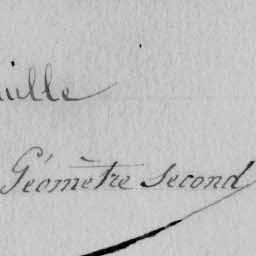 ille
Géomètre Second